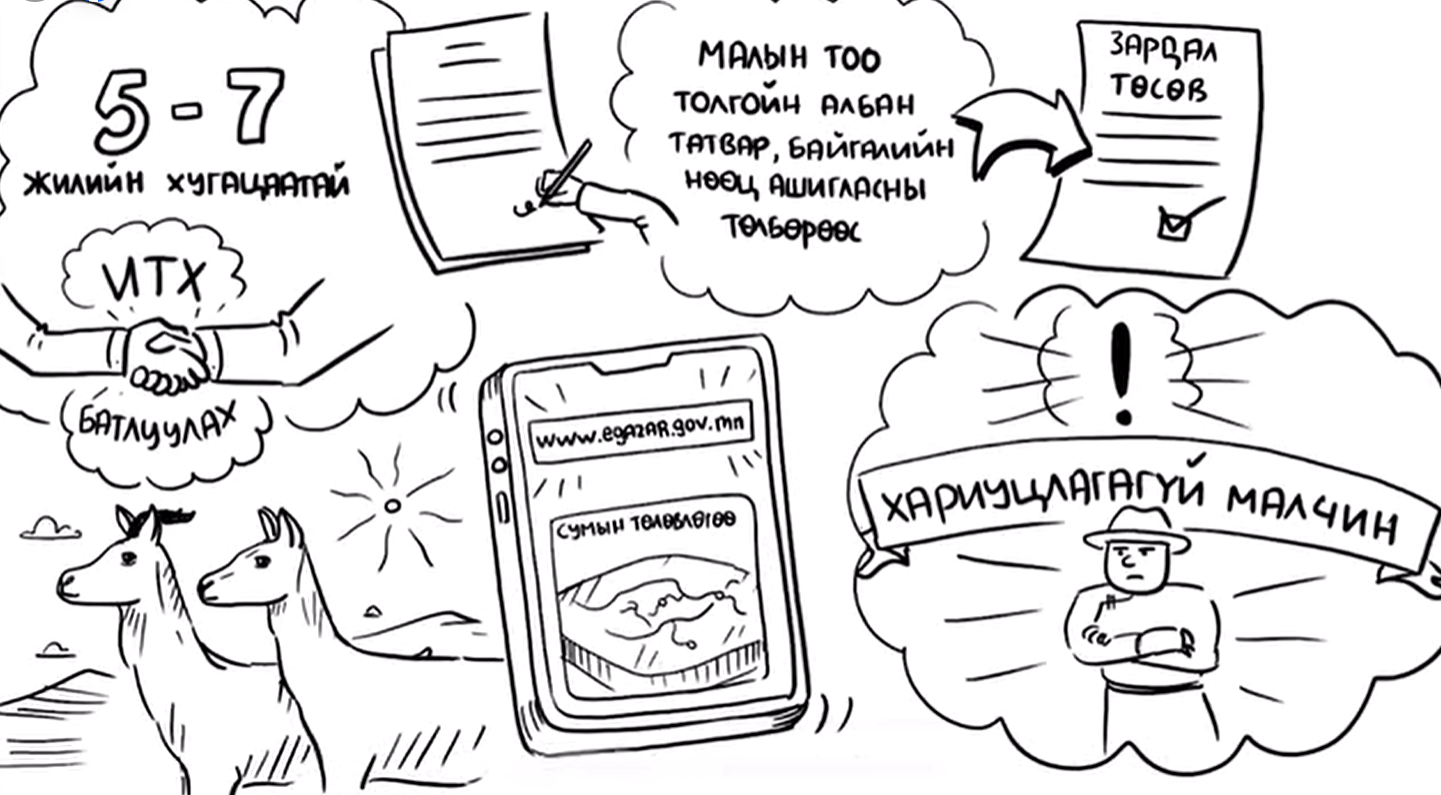 5 - 7
ЖИЛИЙН ХУГАЦААТАЙ
ИТХ
БАТЛУУЛАХ
МАЛЫН ТОО
ТОЛГОЙН АЛБАН
ТАТВАР, БАЙГАЛИЙН
НӨӨЦ АШИГЛАСНЫ
ТӨЛБӨРӨӨС
ЗАРДАЛ
ТӨСӨВ
www.egazar.gov.mn
СУМЫН ТӨЛӨВЛӨГӨӨ
!
ХАРИУЦЛАГАГҮЙ МАЛЧИН